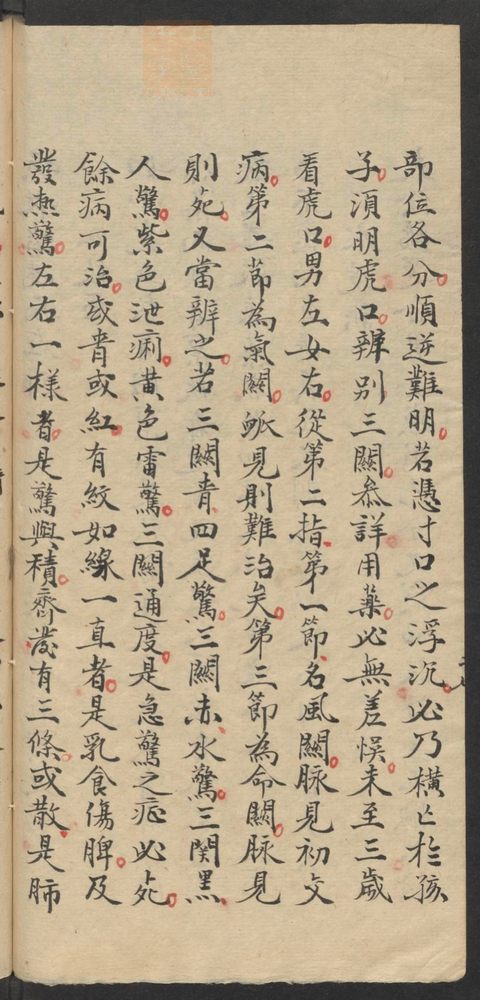 部位各分順逆難明若憑寸口之浮沉必乃橫亡於孩
子須明虎口辨別三關叅詳用藥必無差悞未至三歲
看虎口男左女右從第二指第一節名風關脉見初交
病第二節為氣關脉見則難治矣第三節為命關脉見
則死又當辨之若三關青四足驚三關赤水驚三関黑
人驚紫色泄痢黄色雷驚三關通度是急驚之症必死
餘病可治或青或紅有紋如線一直者是乳食傷脾及
發热驚左右一様者是驚與積齊發有三條或散是肺